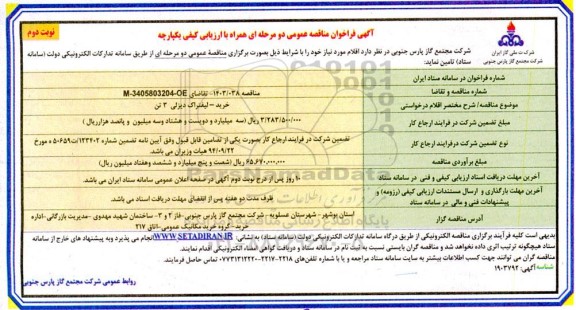 آگهی فراخوان مناقصه عمومی دو مرحله ای همراه با ارزیابی کیفی یکپارچه
نوبت دوم
شرکت ملی گاز ایران
شرکت مجتمع گاز پارس جنوبی
شرکت مجتمع گاز پارس جنوبی در نظر دارد اقلام مورد نیاز خود را با شرایط ذیل بصورت برگزاری مناقصه عمومی دو مرحله ای از طریق سامانه تدارکات الکترونیکی دولت (سامانه
ستاد) تامین نماید:
شماره فراخوان در سامانه ستاد ایران
شماره مناقصه و تقاضا
مناقصه ۱۴۰۳/۰۳۸- تقاضای M-3405803204-OE
موضوع مناقصه/ شرح مختصر اقلام درخواستی
خرید – لیفتراک دیزلی ۳ تن
مبلغ تضمین شرکت در فرایند ارجاع کار
۳/۲۸۳/۵۰۰/۰۰۰ ریال (سه میلیارد و دویست و هشتاد وسه میلیون و پانصد هزارریال )
نوع تضمین شرکت درفرایند ارجاع کار
تضمین شرکت در فرایند ارجاع کار بصورت یکی از تضامین قابل قبول وفق آیین نامه تضمین شماره ۱۲۳۴۰۲/ت۵۰۶۵۹ ه مورخ
۹۴/۰۹/۲۲ هیات وزیران می باشد.
مبلغ برآوردی مناقصه
۶۵,۶۷۰,۰۰۰,۰۰۰ ریال (شصت و پنج میلیارد و ششصد وهفتاد میلیون ریال)
آخرین مهلت دریافت اسناد ارزیابی کیفی و فنی در سامانه ستاد
۱۰ روز پس از درج نوبت دوم آگهی در صفحه اعلان عمومی سامانه ستاد ایران می باشد.
آخرین مهلت بارگذاری و ارسال مستندات ارزیابی کیفی (رزومه) و
پیشنهادات فنی و مالی در سامانه ستاد
ظرف مدت دو هفته پس از انقضای مهلت دریافت اسناد می باشد.
آدرس مناقصه گزار
استان بوشهر - شهرستان عسلویه - شرکت مجتمع گاز پارس جنوبی -فاز ۲ و ۳- ساختمان شهید مهدوی -مدیریت بازرگانی -اداره
خرید -گروه خرید مکانیک عمومی-اتاق ۲۱۷
بدیهی است کلیه فرآیند برگزاری مناقصه الکترونیکی از طریق درگاه سامانه تدارکات الکترونیکی دولت (سامانه ستاد) به نشانی: (WWW.SETADIRAN.IR) انجام می پذیرد وبه پیشنهاد های خارج از سامانه
ستاد هیچگونه ترتیب اثری داده نخواهد شد و مناقصه گران بایستی نسبت به ثبت نام در سامانه ستاد و دریافت گواهی امضاء الکترونیکی اقدام نمایند.
مناقصه گران می توانند جهت کسب اطلاعات بیشتر به سایت سامانه ستاد مراجعه و یا با شماره تلفن‌های ۲۲۱۸-۲۲۱۷-۰۷۷۳۱۳۱۲۲۲۰ تماس حاصل فرمایند.
شناسه آگهی: ۱۹۰۳۷۹۲
روابط عمومی شرکت مجتمع گاز پارس جنوبی